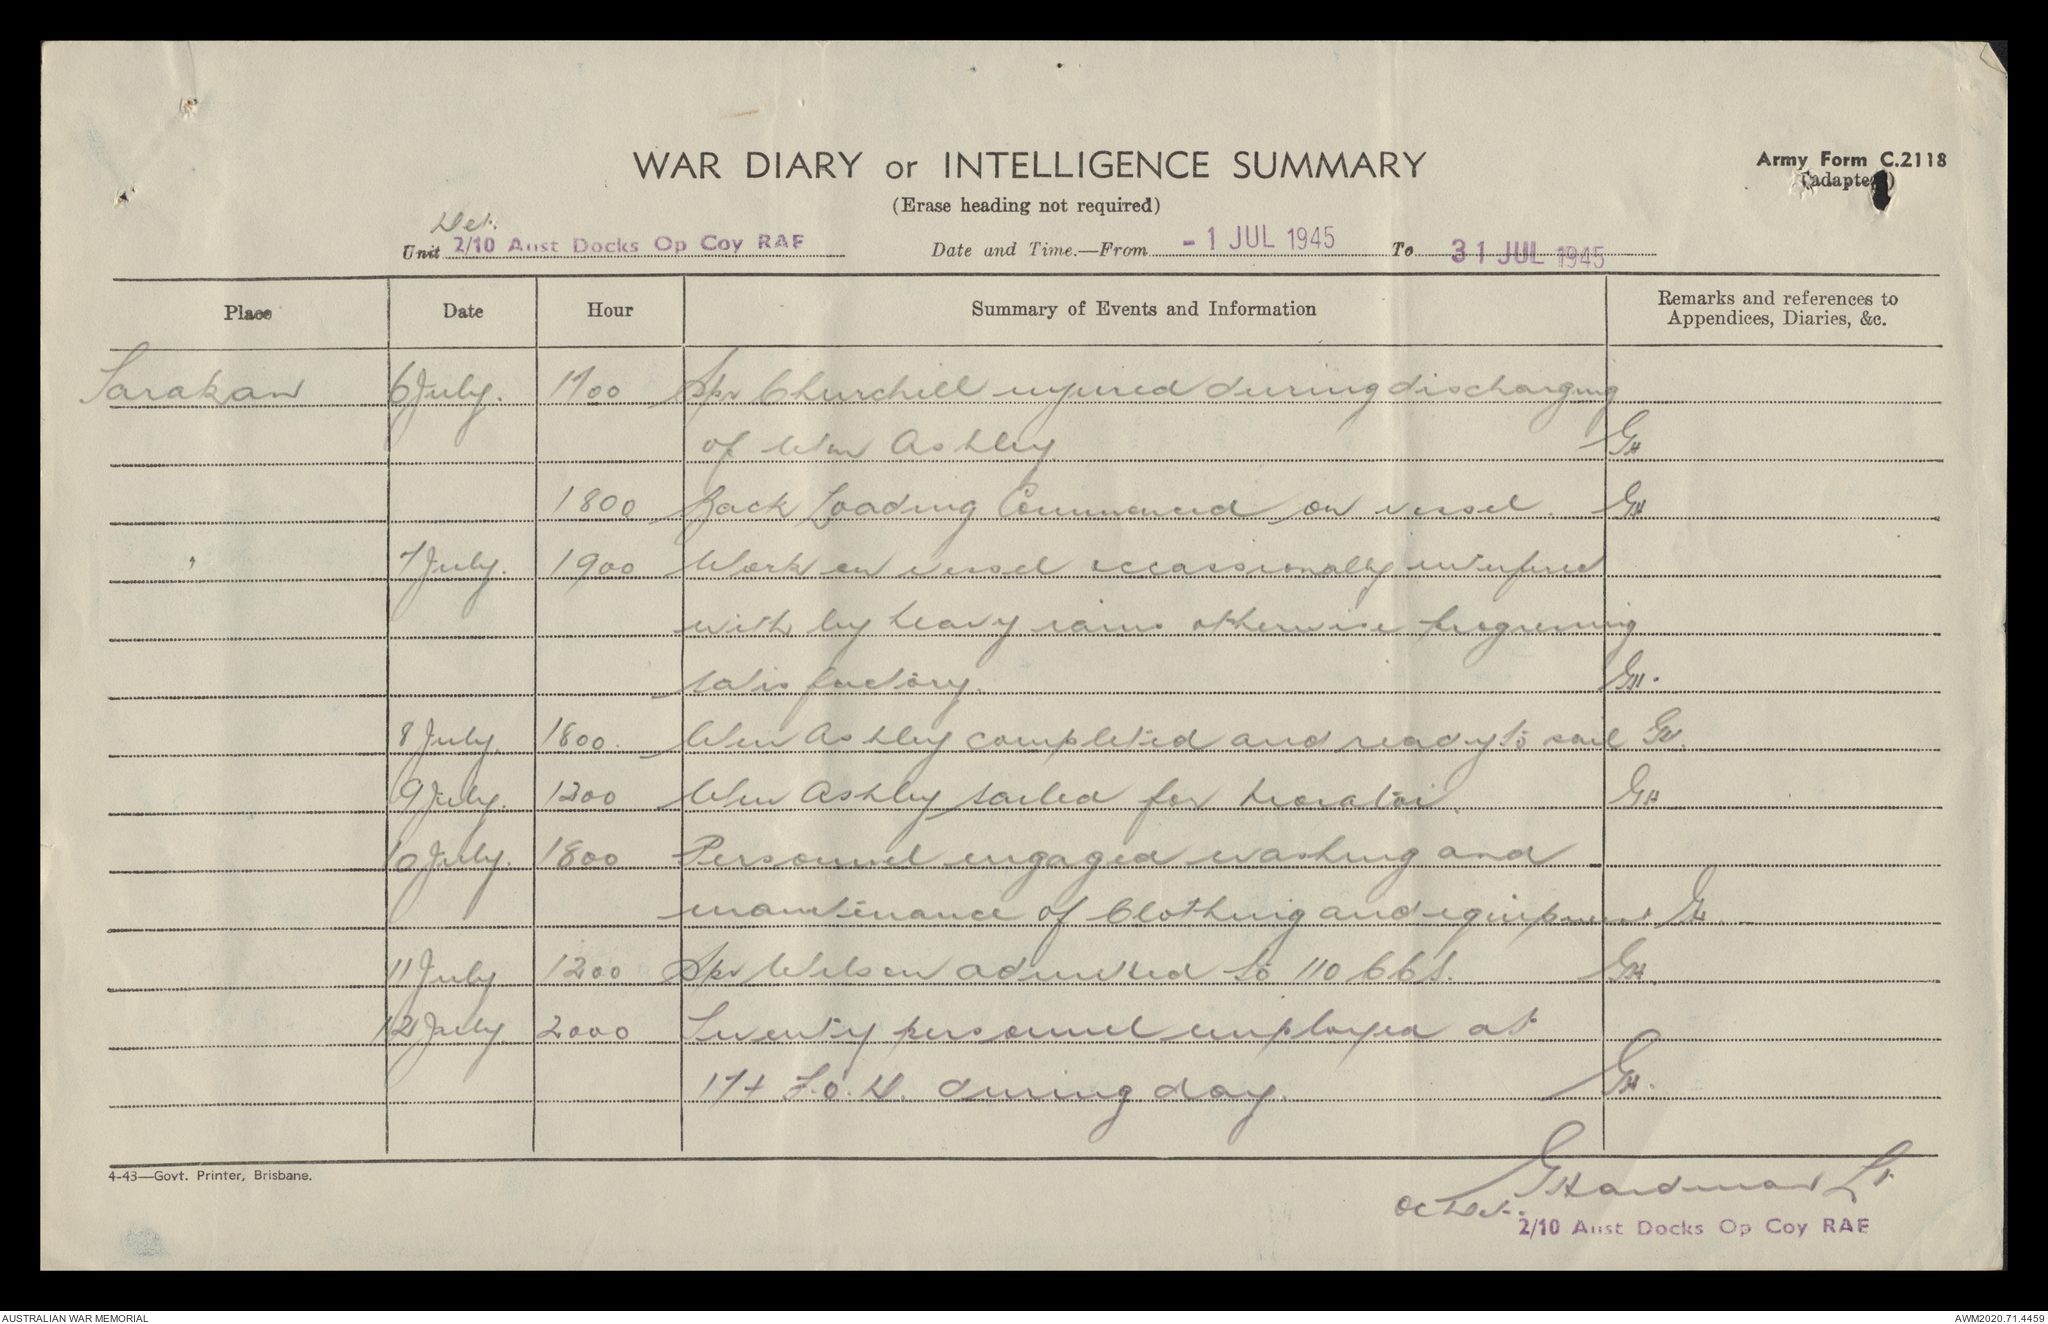 WAR DIARY or INTELLIGENCE SUMMARY
Army Form C.2118
(adapted)
(Erase heading not required)
Det.
Unit 2/10 Aust Docks Op Coy RAE Date and Time.—From - 1 JUL 1945 To 31 JUL 1945
Place Date Hour Summary of Events and Information Remarks and references to
Appendices, Diaries, &c.
Tarakan 6 July. 1700 Spr Churchill injured during discharging
of Wm Ashley GH
1800 Back Loading Commenced on vessel. GH
" 7 July. 1900 Work on vessel occassionally interfered
with by heavy rains otherwise progressing
satisfactory. GH.
8 July. 1800. Wm Ashley completed and ready to sail GH.
9 July. 1200 Wm Ashley sailed for Morotai. GH
10 July. 1800 Personnel engaged washing and
maintenance of Clothing and equipment GH.
11 July 1200 Spr Wilson admitted to 110 CCS. GH.
12 July 2000 Twenty personnel employed at
F.O.D. during day. GH.
4-43—Govt. Printer, Brisbane.
G Hardman Lt
OC Det.
2/10 Aust Docks Op Coy RAE
AUSTRALIAN WAR MEMORIAL
AWM2020.71.4459